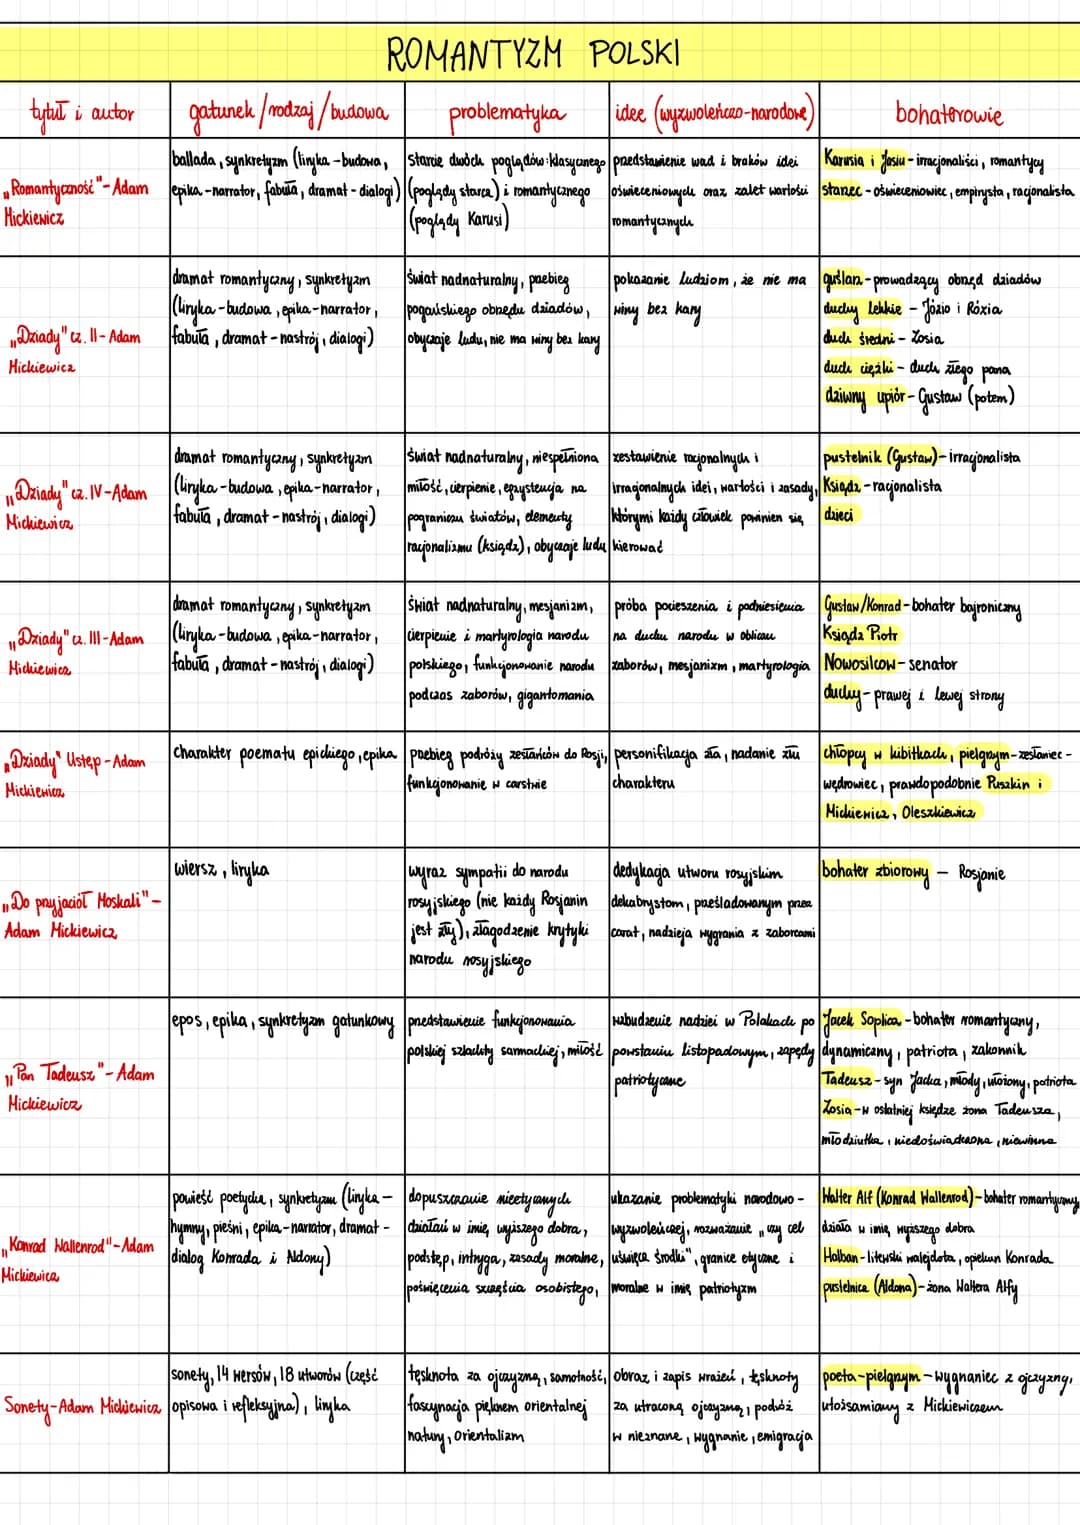 ROMANTYZM POLSKI
tytuł i autor
gatunek/rodzaj/budowa
problematyka
idee (wyzwoleńczo-narodowe)
bohaterowie
„Romantyczność"-Adam
Mickiewicz
ballada, synkretyzm (liryka-budowa,
epika-narrator, fabuła, dramat-dialogi)
starcie dwóch poglądów: klasycznego
(poglądy starca) i romantycznego
(poglądy Karusi)
przedstawienie wad i braków idei
oświeceniowych oraz zalet wartości
romantycznych
Karusia i Jasiu-irracjonaliści, romantycy
starzec-oświeceniowiec, empirysta, racjonalista
„Dziady" cz. II-Adam
Mickiewicz
dramat romantyczny, synkretyzm
(liryka-budowa, epika-narrator,
fabuła, dramat-nastrój, dialogi)
świat nadnaturalny, przebieg
pogańskiego obrzędu dziadów,
obyczaje ludu, nie ma winy bez kary
pokazanie ludziom, że nie ma
winy bez kary
guślarz-prowadzący obrzęd dziadów
duchy lekkie - Józio i Rózia
duch średni - Zosia
duch ciężki - duch złego pana
dziwny upiór-Gustaw (potem)
„Dziady" cz. IV-Adam
Mickiewicz
dramat romantyczny, synkretyzm
(liryka-budowa, epika-narrator,
fabuła, dramat-nastrój, dialogi)
świat nadnaturalny, niespełniona
miłość, cierpienie, egzystencja na
pograniczu światów, elementy
racjonalizmu (ksiądz), obyczaje ludu
zestawienie racjonalnych i
irracjonalnych idei, wartości i zasady,
którymi każdy człowiek powinien się
kierować
pustelnik (Gustaw)-irracjonalista
Ksiądz-racjonalista
dzieci
„Dziady" cz. III-Adam
Mickiewicz
dramat romantyczny, synkretyzm
(liryka-budowa, epika-narrator,
fabuła, dramat-nastrój, dialogi)
świat nadnaturalny, mesjanizm,
cierpienie i martyrologia narodu
polskiego, funkcjonowanie narodu
podczas zaborów, gigantomania
próba pocieszenia i podniesienia
na duchu narodu w obliczu
zaborów, mesjanizm, martyrologia
Gustaw/Konrad-bohater bajroniczny
Ksiądz Piotr
Nowosilcow-senator
duchy-prawej i lewej strony
„Dziady" Ustęp-Adam
Mickiewicz
charakter poematu epickiego, epika
przebieg podróży zesłańców do Rosji,
funkcjonowanie w carstwie
personifikacja zła, nadanie złu
charakteru
chłopcy w kibitkach, pielgrzym-zesłaniec-
wędrowiec, prawdopodobnie Puszkin i
Mickiewicz, Oleszkiewicz
„Do przyjaciół Moskali"-
Adam Mickiewicz
wiersz, liryka
wyraz sympatii do narodu
rosyjskiego (nie każdy Rosjanin
jest zły), złagodzenie krytyki
narodu rosyjskiego
dedykacja utworu rosyjskim
dekabrystom, prześladowanym przez
carat, nadzieja wygrania z zaborcami
bohater zbiorowy - Rosjanie
„Pan Tadeusz"-Adam
Mickiewicz
epos, epika, synkretyzm gatunkowy
przedstawienie funkcjonowania
polskiej szlachty sarmackiej, miłość
wzbudzenie nadziei w Polakach po
powstaniu listopadowym, zapędy
patriotyczne
Jacek Soplica-bohater romantyczny,
dynamiczny, patriota, zakonnik
Tadeusz-syn Jacka, młody, ułożony, patriota
Zosia-w ostatniej księdze żona Tadeusza,
młodziutka, niedoświadczona, niewinna
„Konrad Wallenrod"-Adam
Mickiewicz
powieść poetycka, synkretyzm (liryka-
hymny, pieśni, epika-narrator, dramat-
dialog Konrada i Aldony)
dopuszczanie nieetycznych
działań w imię wyższego dobra,
podstęp, intryga, zasady moralne,
poświęcenia szczęścia osobistego,
ukazanie problematyki narodowo-
wyzwoleńczej, rozważanie „czy cel
uświęca środki", granice etyczne i
moralne w imię patriotyzm
Walter Alf (Konrad Wallenrod)-bohater romantyczny,
działa w imię wyższego dobra
Halban-litewski wajdelota, opiekun Konrada
pustelnica (Aldona)-żona Waltera Alfy
Sonety-Adam Mickiewicz
sonety, 14 wersów, 18 utworów (część
opisowa i refleksyjna), liryka
tęsknota za ojczyzną, samotność,
fascynacja pięknem orientalnej
natury, orientalizm
obraz i zapis wrażeń, tęsknoty
za utraconą ojczyzną, podróż
w nieznane, wygnanie, emigracja
poeta-pielgrzym-wygnaniec z ojczyzny,
utożsamiany z Mickiewiczem